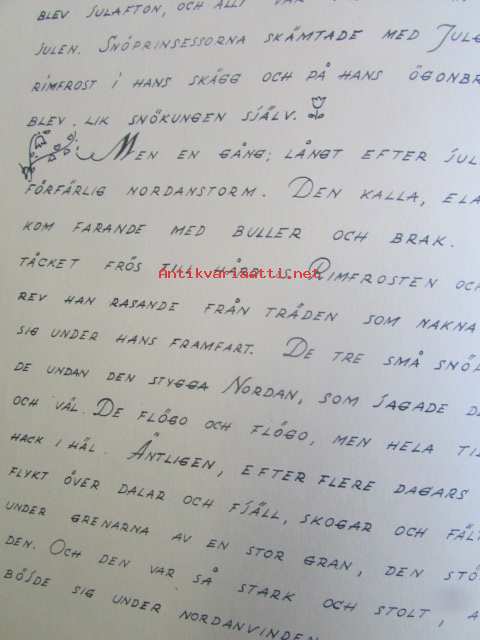 BLEV JULAFTON, OCH ALLT VAR
JULEN. SNÖPRINSESSORNA SKÄMTADE MED JULG
RIMFROST I HANS SKÄGG OCH PÅ HANS ÖGONBR
BLEV LIK SNÖKUNGEN SJÄLV.
MEN EN GÅNG, LÅNGT EFTER JUL
FÖRFÄRLIG NORDANSTORM. DEN KALLA, ELA
KOM FARANDE MED BULLER OCH BRAK.
TÄCKET FRÖS TILL HÅRD RIMFROSTEN OCH
Antikvariaatti.net
REV HAN RASANDE FRÅN TRÄDEN SOM NAKNA
SIG UNDER HANS FRAMFART. DE TRE SMÅ SNÖP
DE UNDAN DEN STYGGA NORDAN, SOM JAGADE DE
OCH VÄL. DE FLÖGO OCH FLÖGO, MEN HELA TI
HACK I HÄL. ÄNTLIGEN, EFTER FLERE DAGARS
FLYKT ÖVER DALAR OCH FJÄLL, SKOGAR OCH FÄLT
UNDER GRENARNA AV EN STOR GRAN, DEN STÖ
DEN. OCH DEN VAR SÅ STARK OCH STOLT, A
BÖJDE SIG UNDER NORDANVINDEN